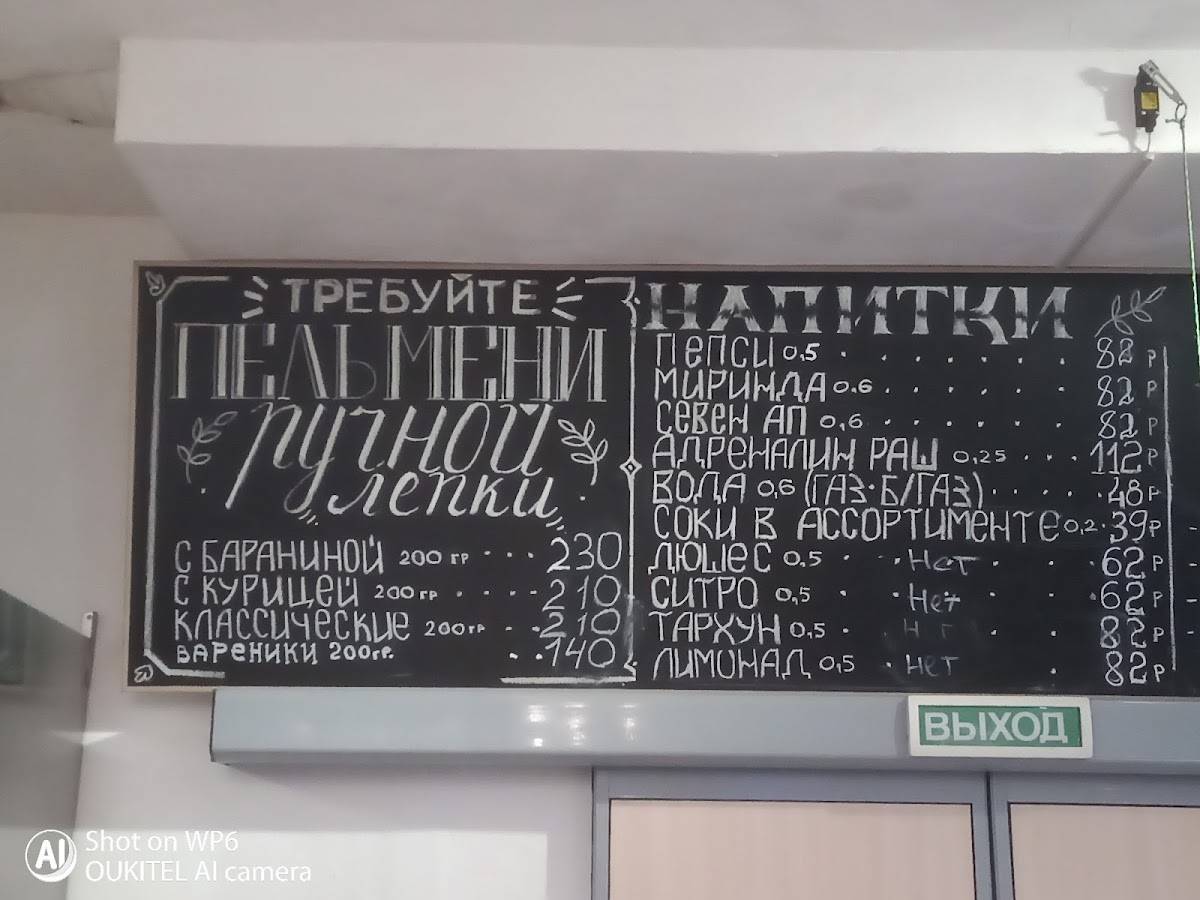 ТРЕБУЙТЕ
ПЕЛЬМЕНИ
ручной
лепки
С БАРАНИНОЙ 200 гр 230
С КУРИЦЕЙ 200 гр 210
КЛАССИЧЕСКИЕ 200 гр 210
ВАРЕНИКИ 200 гр. 140
НАПИТКИ
ПЕПСИ 0,5 82 р
МИРИНДА 0,6 82 р
СЕВЕН АП 0,6 82 р
АДРЕНАЛИН РАШ 0,25 112 р
ВОДА 0,6 (ГАЗ·Б/ГАЗ) 48 р
СОКИ В АССОРТИМЕНТЕ 0,2 39 р
ДЮШЕС 0,5 Нет 62 р
СИТРО 0,5 Нет 62 р
ТАРХУН 0,5 82 р
ЛИМОНАД 0,5 нет 82 р
ВЫХОД
AI Shot on WP6
OUKITEL AI camera